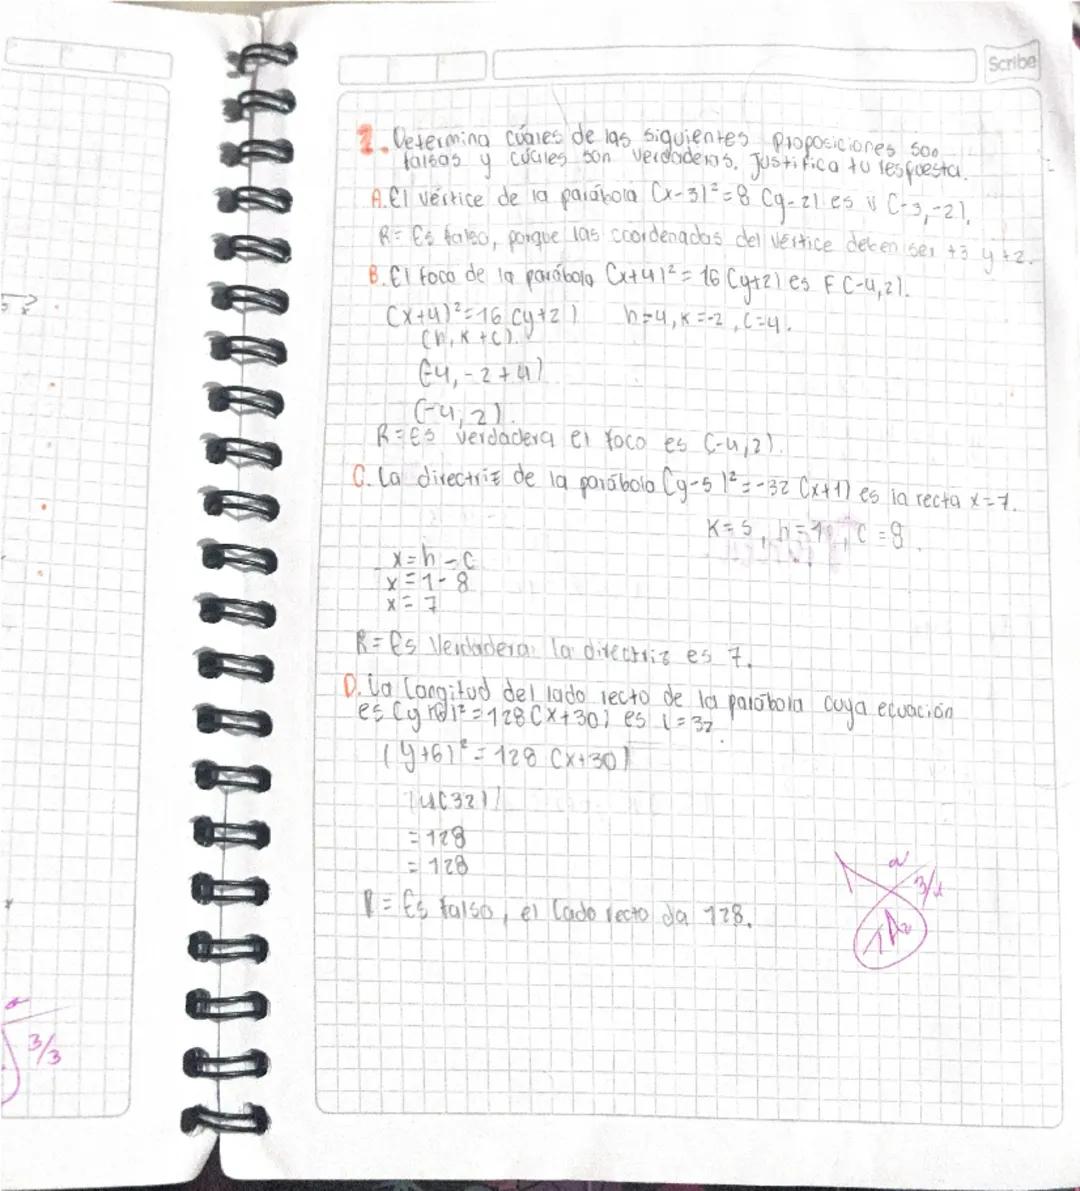 Scribe
1. Determina cuáles de las siguientes proposiciones son
falsas y cuáles son verdaderas. Justifica tu respuesta.
A. El vértice de la parábola (x-3)²=8 (y-2) es V (-3,-2).
R= Es falso, porque las coordenadas del vértice deben ser +3 y +2.
B. El foco de la parábola (x+4)² = 16 (y+2) es F (-4,2).
(x+4)²=16 (y+2) h=4, K=-2, C=4.
(h, K+C).
(-4, -2+4)
(-4, 2).
R= Es verdadera el foco es (-4,2).
C. La directriz de la parábola (y-5)²=-32 (x+1) es la recta x=7.
K=5, h=1, C=8.
x=h-C
x=1-8
x=7
R= Es Verdadera la directriz es 7.
D. La longitud del lado recto de la parábola cuya ecuación
es (y+6)²=128 (x+30) es L=32.
(y+6)²=128 (x+30)
|4(32)|
=128
=128
R= Es falso, el lado recto da 128.
3/3